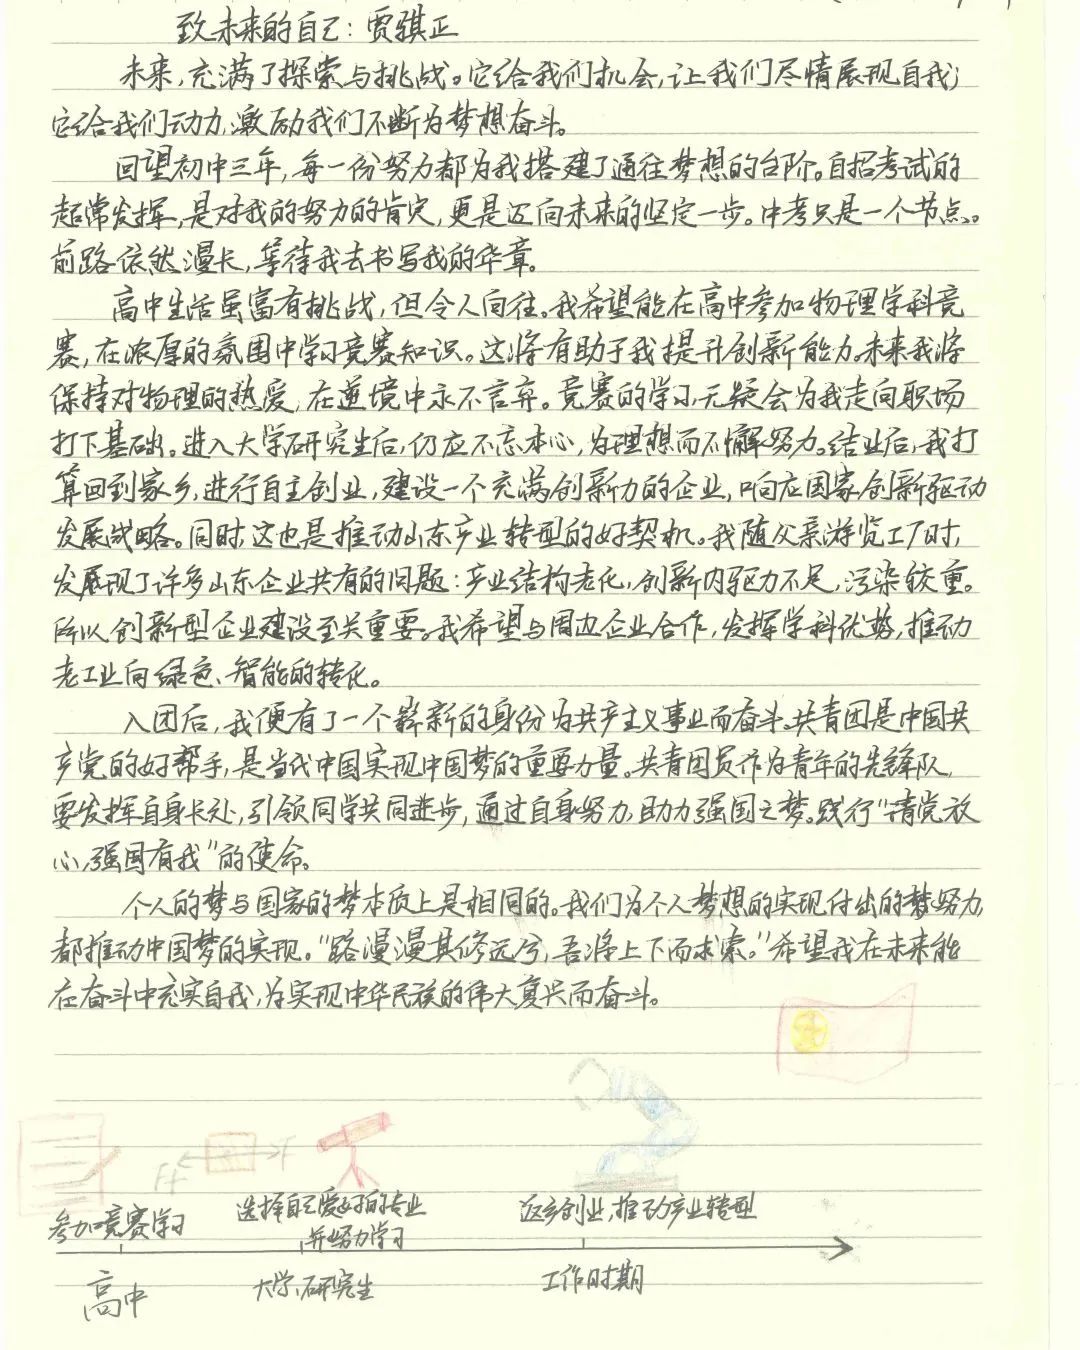 致未来的自己：贾骐正
未来，充满了探索与挑战。它给我们机会，让我们尽情展现自我；
它给我们动力，激励我们不断为梦想奋斗。
回望初中三年，每一份努力都为我搭建了通往梦想的台阶。自招考试的
超常发挥，是对我的努力的肯定，更是迈向未来的坚定一步。中考只是一个节点。
前路依然漫长，等待我去书写我的华章。
高中生活虽富有挑战，但令人向往。我希望能在高中参加物理学科竞
赛，在浓厚的氛围中学习竞赛知识。这将有助于我提升创新能力。未来我将
保持对物理的热爱，在逆境中永不言弃。竞赛的学习，无疑会为我走向职场
打下基础。进入大学研究生后，仍应不忘本心，为理想而不懈努力。结业后，我打
算回到家乡，进行自主创业，建设一个充满创新力的企业，响应国家创新驱动
发展战略。同时，这也是推动山东产业转型的好契机。我随父亲游览工厂时，
发展现了许多山东企业共有的问题：产业结构老化，创新内驱力不足，污染较重。
所以创新型企业建设至关重要。我希望与周边企业合作，发挥学科优势，推动
老工业向绿色、智能的转化。
入团后，我便有了一个崭新的身份为共产主义事业而奋斗。共青团是中国共
产党的好帮手，是当代中国实现中国梦的重要力量。共青团员作为青年的先锋队，
要发挥自身长处，引领同学共同进步，通过自身努力，助力强国之梦。践行“请党放
心，强国有我”的使命。
个人的梦与国家的梦本质上是相同的。我们为个人梦想的实现付出的努力，
都推动中国梦的实现。“路漫漫其修远兮，吾将上下而求索。”希望我在未来能
在奋斗中充实自我，为实现中华民族的伟大复兴而奋斗。
F
参加竞赛学习
选择自己爱好的专业
并努力学习
返乡创业，推动产业转型
高中
大学、研究生
工作时期